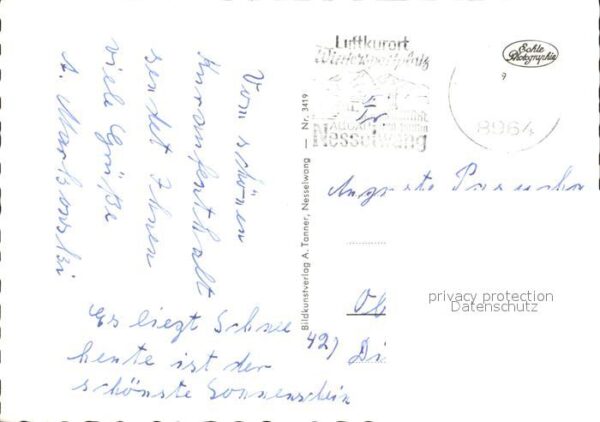 Vom schönen
Kuraufenthalt
sendet Ihnen
viele Grüße
A. Markowski
Es liegt Schnee
heute ist der
schönste Sonnenschein
Luftkurort
Wintersportplatz
Nesselwang
Echte
Photographie
9
8964
Bildkunstverlag A. Tanner, Nesselwang — Nr. 3419
Auguste
Ob
42) Di
privacy protection
Datenschutz